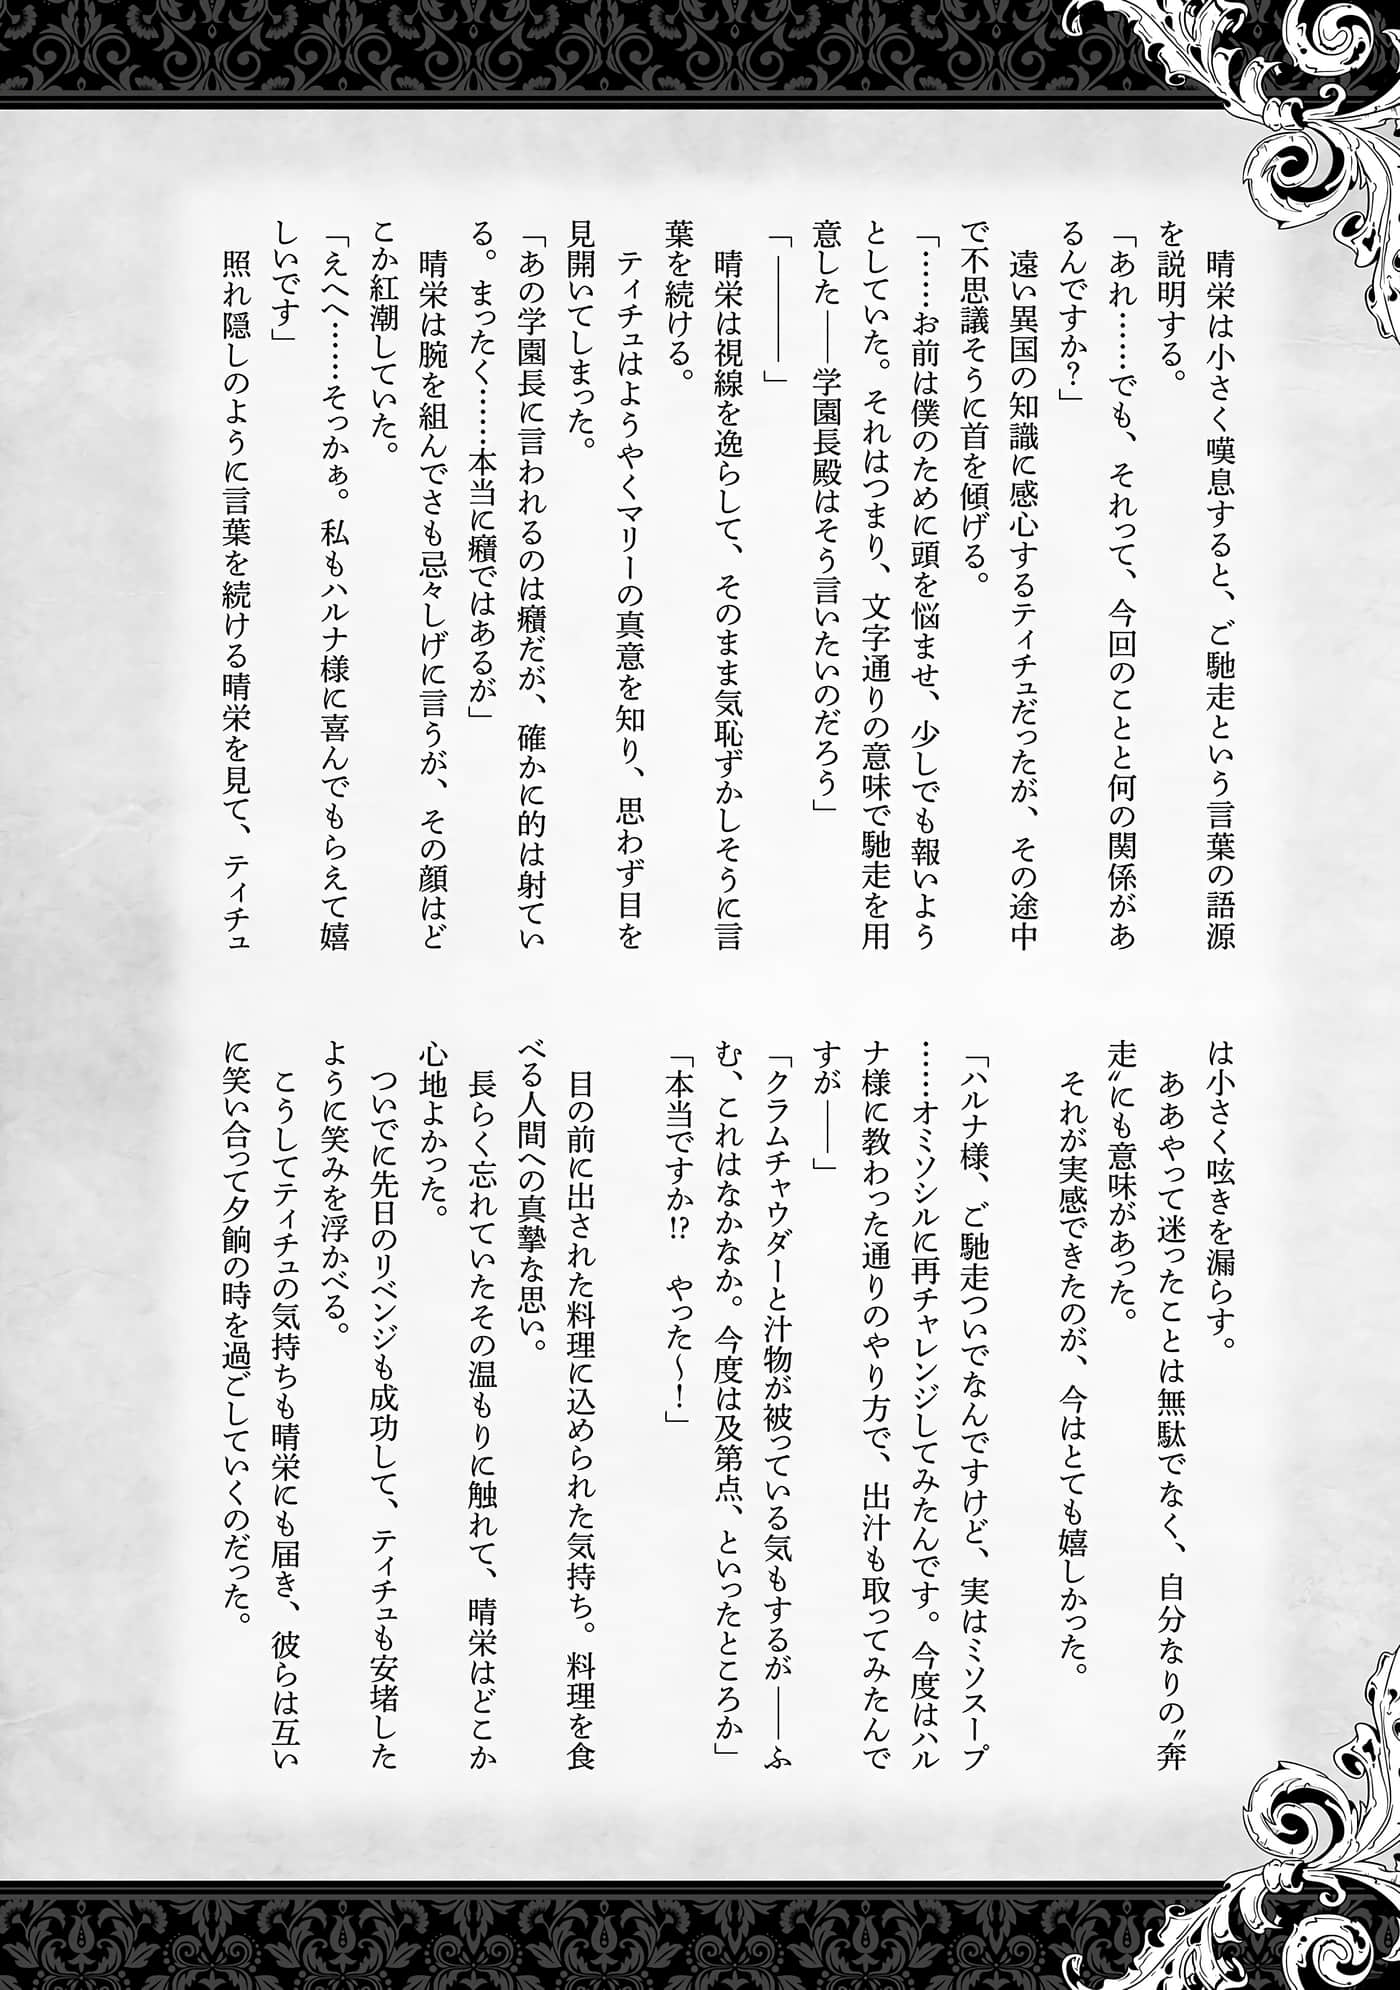 晴栄は小さく嘆息すると、ご馳走という言葉の語源
を説明する。
「あれ……でも、それって、今回のことと何の関係があ
るんですか？」
　遠い異国の知識に感心するティチュだったが、その途中
で不思議そうに首を傾げる。
「……お前は僕のために頭を悩ませ、少しでも報いよう
としていた。それはつまり、文字通りの意味で馳走を用
意した――学園長殿はそう言いたいのだろう」
「――――」
　晴栄は視線を逸らして、そのまま気恥ずかしそうに言
葉を続ける。
　ティチュはようやくマリーの真意を知り、思わず目を
見開いてしまった。
「あの学園長に言われるのは癪だが、確かに的は射てい
る。まったく……本当に癪ではあるが」
　晴栄は腕を組んでさも忌々しげに言うが、その顔はど
こか紅潮していた。
「えへへ……そっかぁ。私もハルナ様に喜んでもらえて嬉
しいです」
　照れ隠しのように言葉を続ける晴栄を見て、ティチュ
は小さく呟きを漏らす。
　ああやって迷ったことは無駄でなく、自分なりの〝奔
走〟にも意味があった。
　それが実感できたのが、今はとても嬉しかった。
「ハルナ様、ご馳走ついでなんですけど、実はミソスープ
……オミソシルに再チャレンジしてみたんです。今度はハル
ナ様に教わった通りのやり方で、出汁も取ってみたんで
すが――」
「クラムチャウダーと汁物が被っている気もするが――ふ
む、これはなかなか。今度は及第点、といったところか」
「本当ですか!?　やった～！」
　目の前に出された料理に込められた気持ち。料理を食
べる人間への真摯な思い。
　長らく忘れていたその温もりに触れて、晴栄はどこか
心地よかった。
　ついでに先日のリベンジも成功して、ティチュも安堵した
ように笑みを浮かべる。
　こうしてティチュの気持ちも晴栄にも届き、彼らは互い
に笑い合って夕餉の時を過ごしていくのだった。